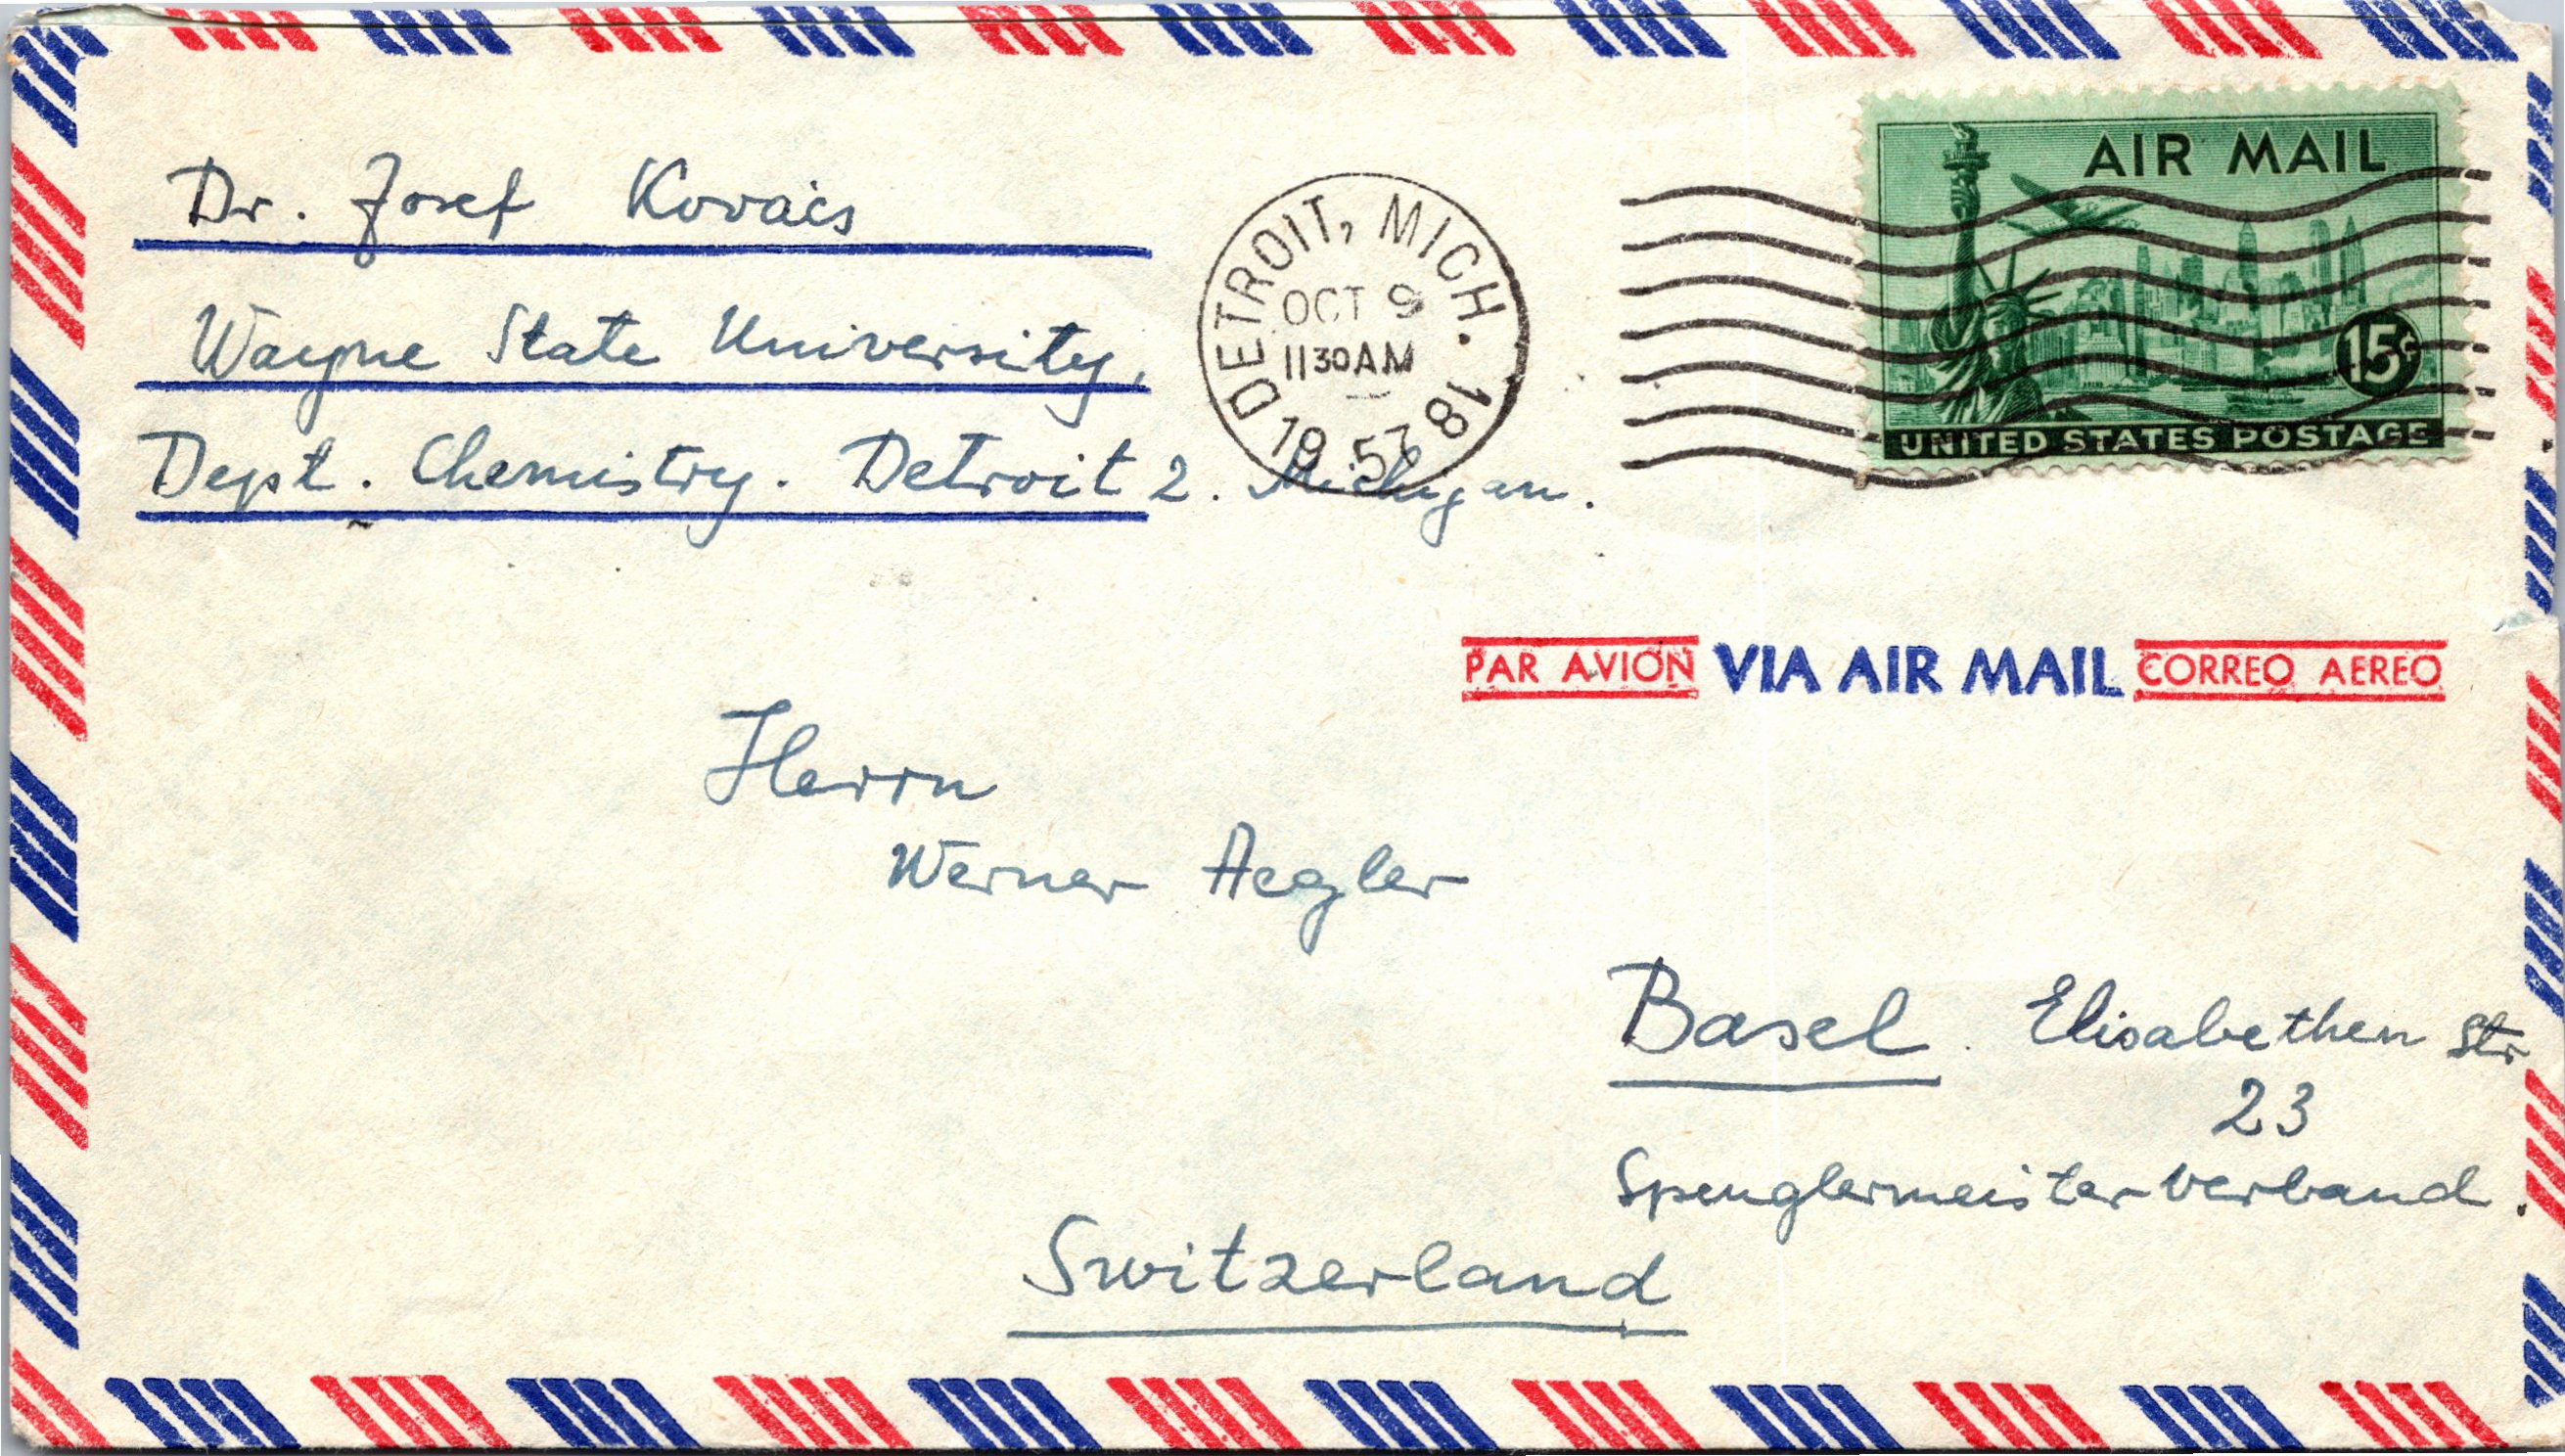 Dr. Josef Kovács
Wayne State University,
Dept. Chemistry. Detroit 2. Michigan.
DETROIT, MICH. 18
OCT 9
1130AM
1957
AIR MAIL
15¢
UNITED STATES POSTAGE
PAR AVION VIA AIR MAIL CORREO AEREO
Herrn
Werner Aegler
Basel. Elisabethen Str
23
Spenglermeister Verband.
Switzerland